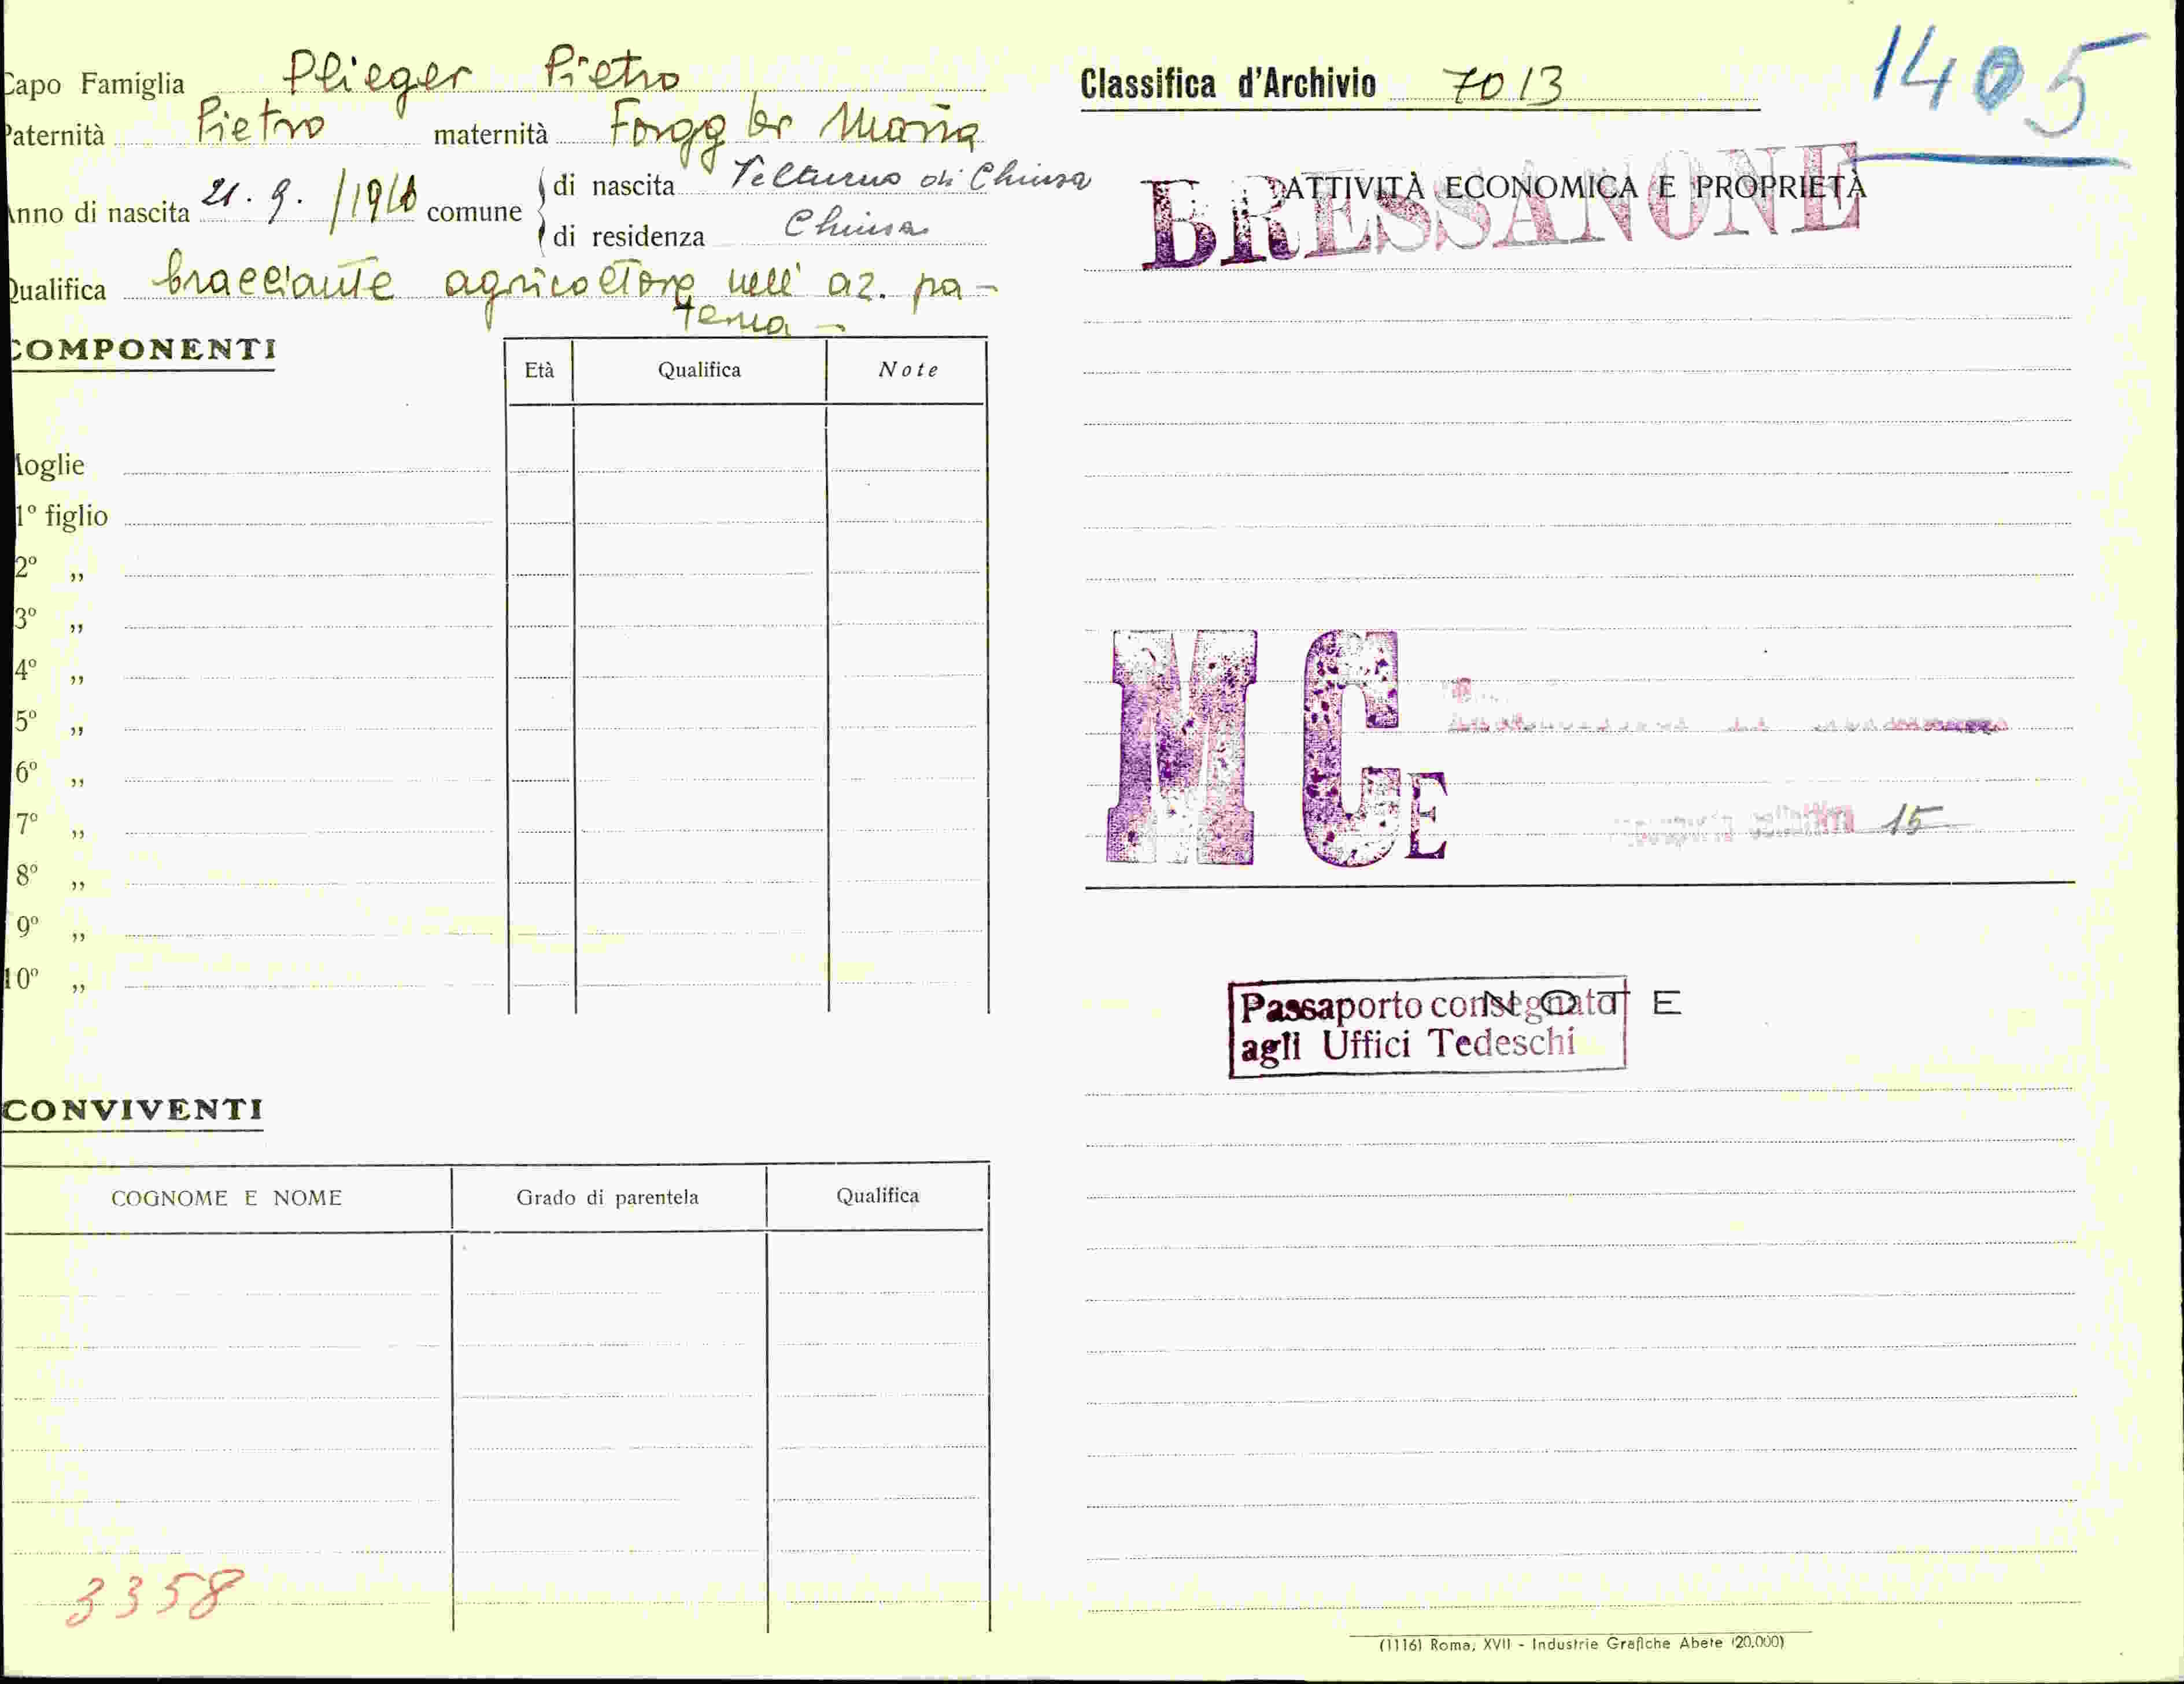 Capo Famiglia Plieger Pietro
Paternità Pietro maternità Forggler Maria
Anno di nascita 21.9./19 comune di nascita Telturno di Chiusa
di residenza Chiusa
Qualifica bracciante agricoltore nell' az. pa-
terna -
COMPONENTI
Età Qualifica Note
Moglie
1º figlio
2º „
3º „
4º „
5º „
6º „
7º „
8º „
9º „
10º „
CONVIVENTI
COGNOME E NOME Grado di parentela Qualifica
3358
Classifica d'Archivio 7013
1405
BRESSANONE
ATTIVITÀ ECONOMICA E PROPRIETÀ
MCE
15
NOTE
Passaporto consegnato
agli Uffici Tedeschi
(1116) Roma, XVII - Industrie Grafiche Abete (20.000)